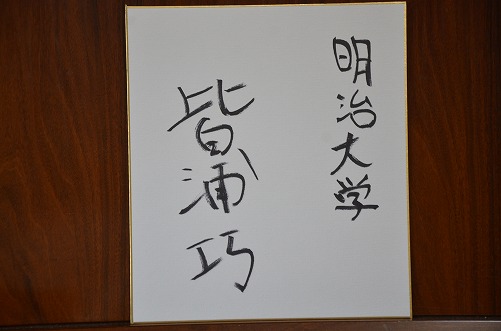 明治大学
皆浦巧